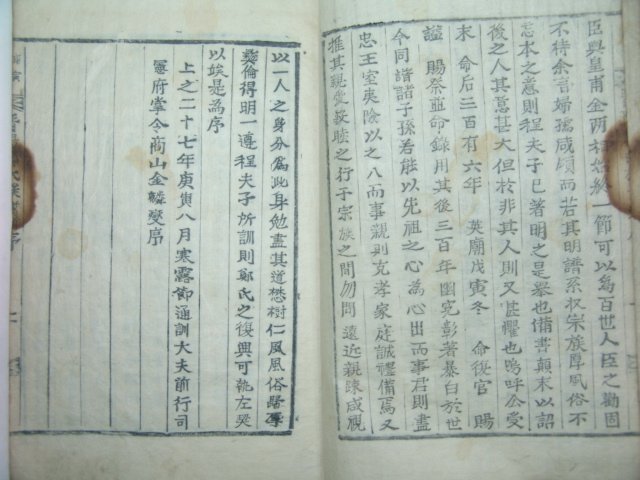 臣與皇甫金兩相始終一節可以爲百世人臣之勸固
不待余言婦孺咸頌而若其明譜系収宗族厚風俗不
忘本之意則程夫子已著明之是擧也備書顚末以詔
後之人其意甚大但於非其人則又甚懼也嗚呼公受
求 命后三百有六年 英廟戊寅冬 命復官 賜
諡 賜祭並命錄用其後三百年幽寃彭著暴白於世
今同諧諸子孫若能以先祖之心爲心出而事君則盡
忠王室夷險以之入而事親則克孝家庭誠禮備焉又
推其親愛敦睦之行于宗族之間勿問 遠近親踈咸視
以一人之身分爲此身勉盡其道懋樹仁風風俗歸厚
彜倫得明一遵程夫子所訓則鄭氏之復興可執左契
以竢是爲序
上之二十七年庚寅八月寒露節通訓大夫前行司
憲府掌令商山金
燮序